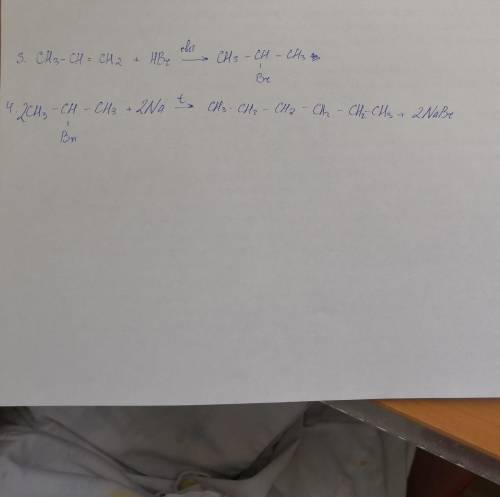 3. CH3 - CH = CH2 + HBr → CH3 - CH - CH3
Br
4. 2CH3 - CH - CH3 + 2Na t→ CH3 - CH2 - CH2 - CH2 - CH2 - CH3 + 2NaBr
Br